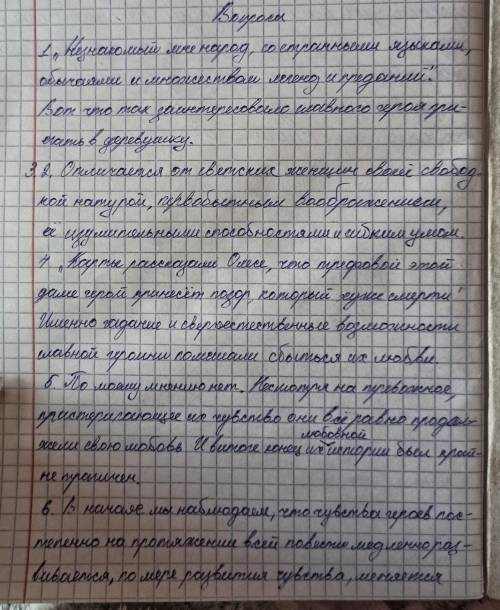 Вопросы
1. „Незнакомый мне народ, со странными языками,
обычаями и множеством легенд и преданий".
Вот что так заинтересовало главного героя при-
ехать в деревушку.
3.2. Отличается от светских женщин своей свобод-
ной натурой, первобытным воображением,
её изумительными способностями и гибким умом.
4 „Карты рассказали Олесе, что трефовой этой
даме герой принесёт позор, который хуже смерти"
Именно гадание и сверхестественные возможности
главной героини помешали сбыться их любви.
5. По моему мнению нет. Несмотря на тревожное,
пристеригающее их чувство они всё равно продол-
жели свою любовь. И в итоге конец их любовной истории был край-
не трагичен.
6. В начале мы наблюдаем, что чувства героев пос-
тепенно на протяжении всей повести медленно раз-
вивается, по мере развития чувства, меняется